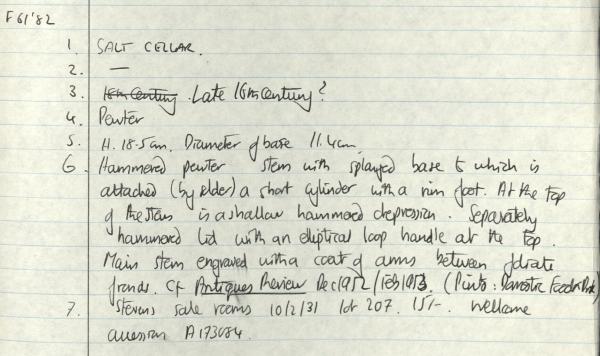 F61'82
1. SALT CELLAR.
2. —
3. 18th Century Late 16th Century?
4. Pewter
5. H. 18.5cm. Diameter of base 11.4cm.
6. Hammered pewter stem with splayed base to which is
attached (by solder) a short cylinder with a rim foot. At the top
of the stem is a shallow hammered depression. Separately
hammered lid with an elliptical loop handle at the top.
Main stem engraved with a coat of arms between foliate
fronds. Cf Antiques Review Dec 1952/Feb 1953. (Pinto: Domestic
7. Stevens sale rooms 10/2/31 lot 207. 15/-. Wellcome
accession A173084.